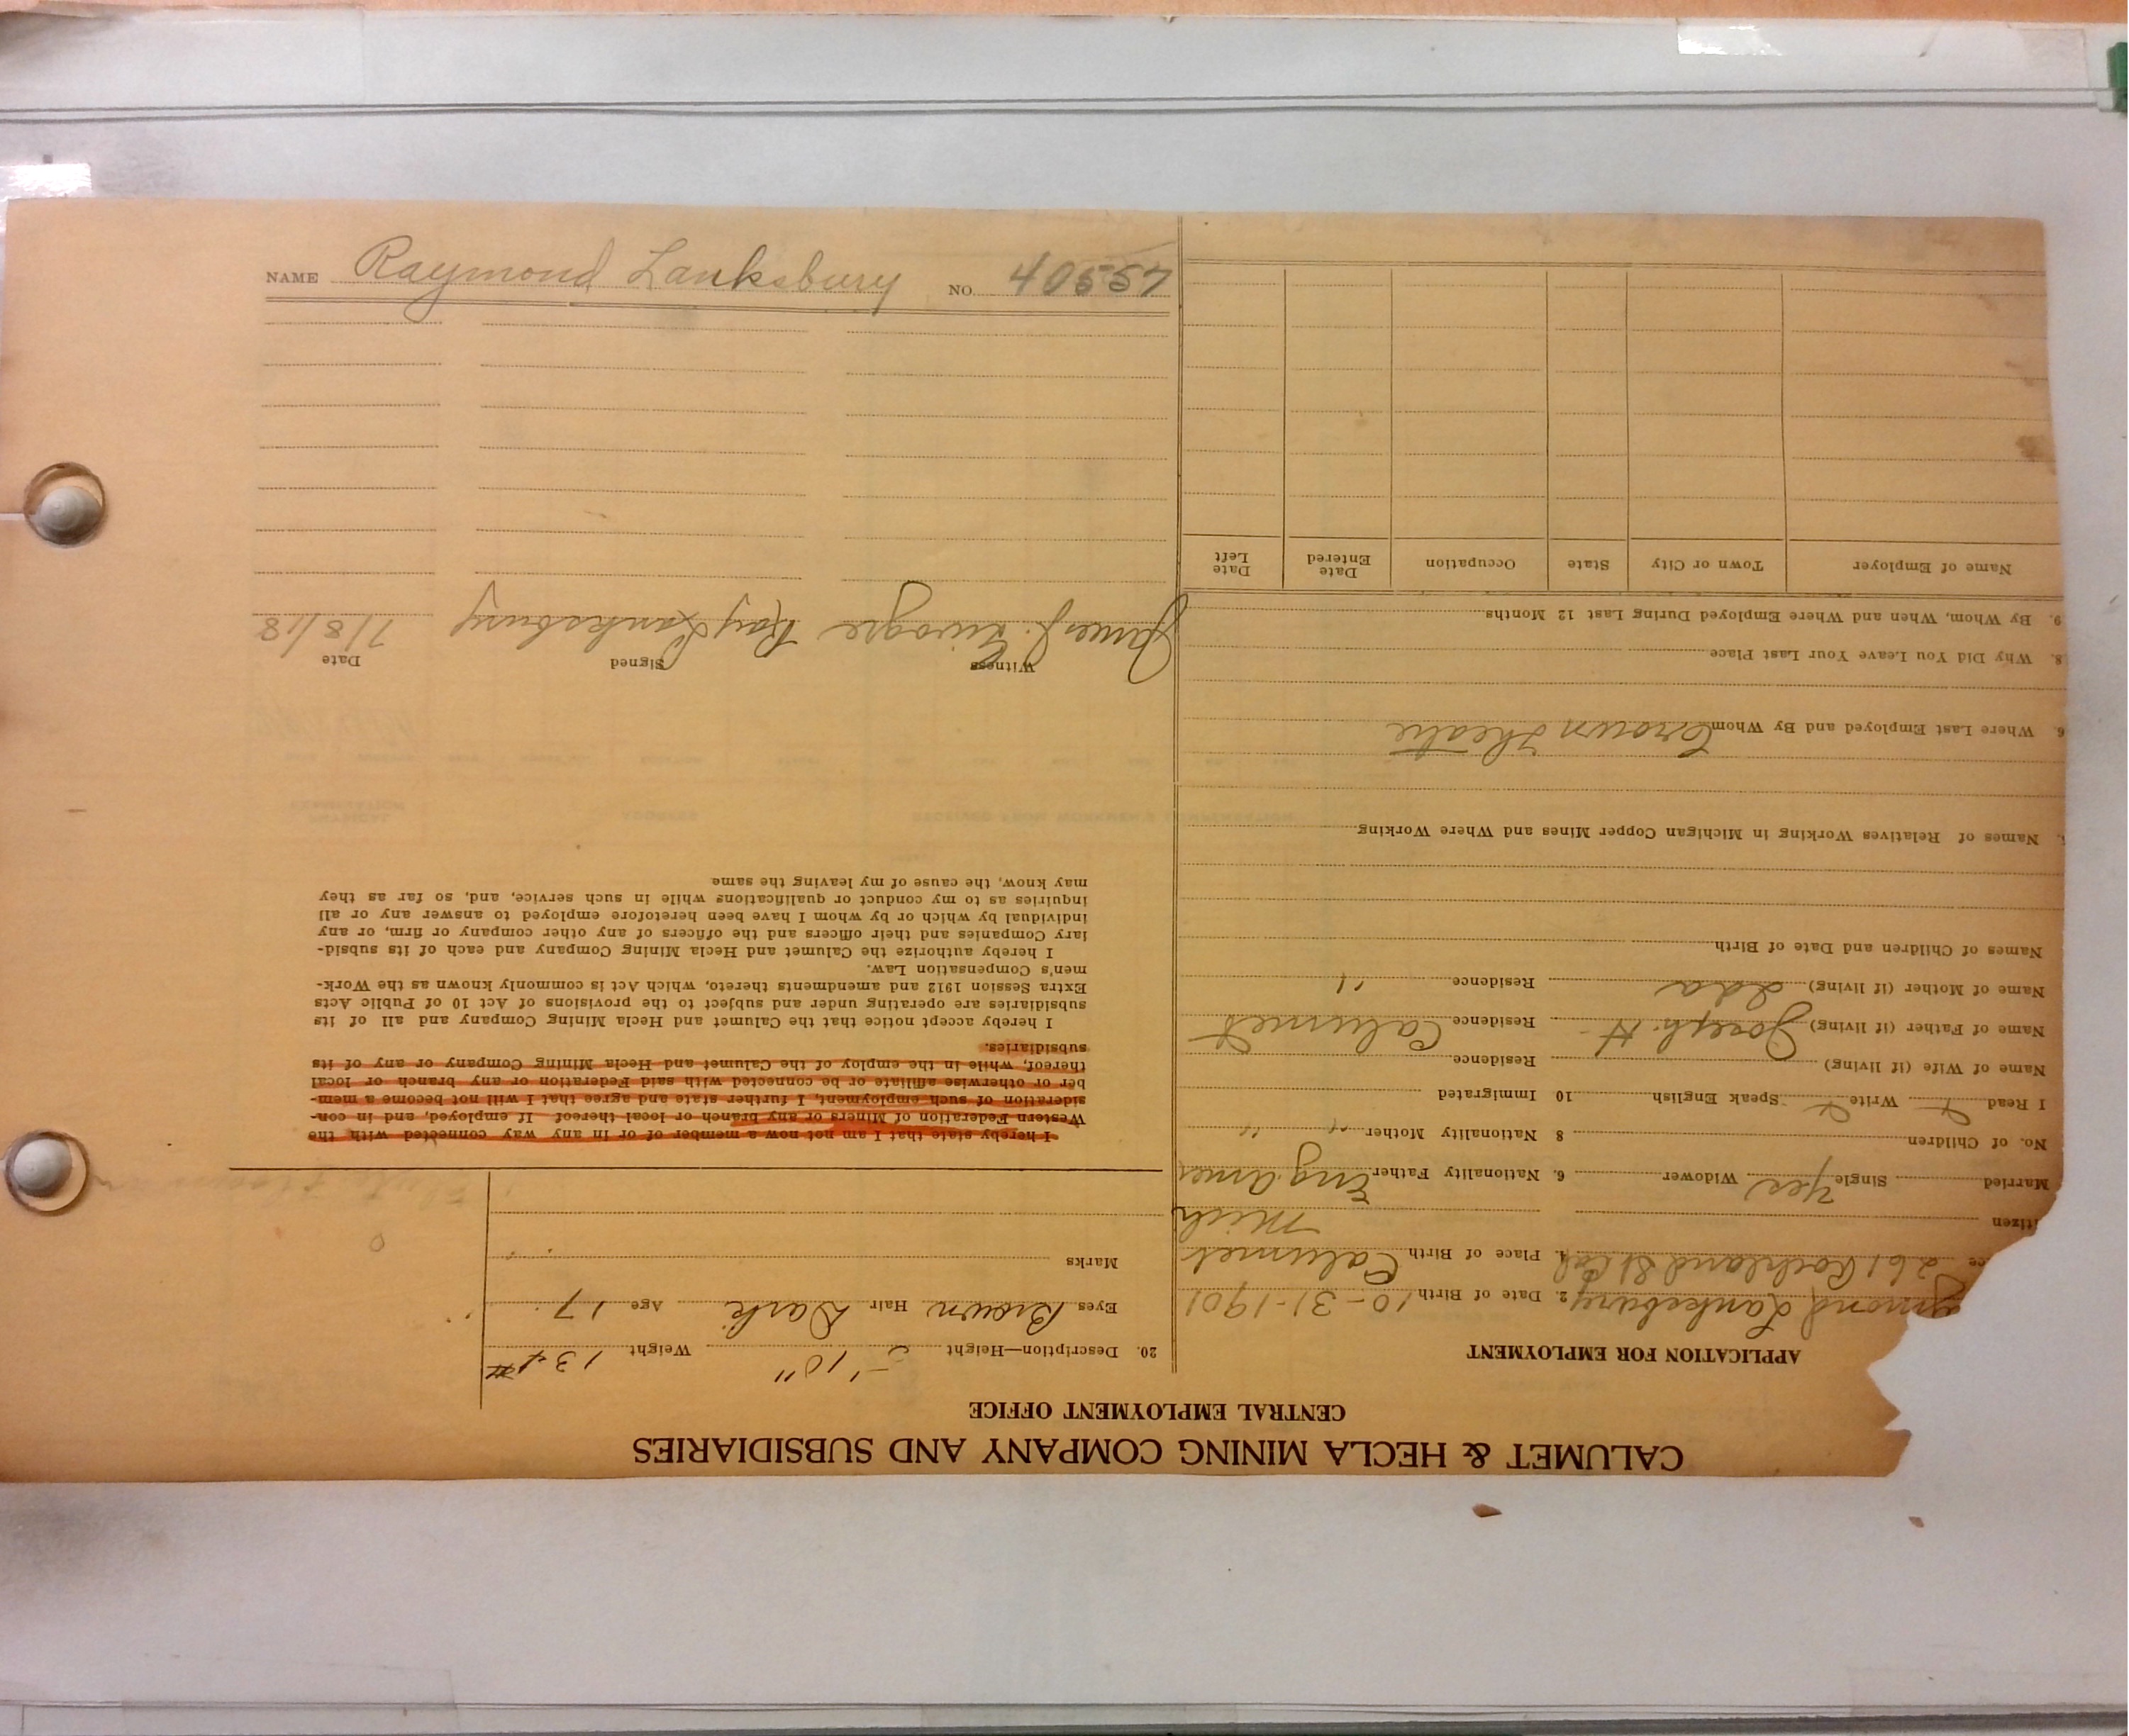 NAME Raymond Lanksbury NO. 40557
CALUMET & HECLA MINING COMPANY AND SUBSIDIARIES
CENTRAL EMPLOYMENT OFFICE
APPLICATION FOR EMPLOYMENT
ymond Lanksbury 2. Date of Birth 10-31-1901
ce 261 Rockland St Cal 4. Place of Birth Calumet
itizen Mich
Married Single Yes Widower 6. Nationality Father Eng. Amer
No. of Children 8 Nationality Mother " "
I Read Write Speak English 10 Immigrated
Name of Wife (if living) Residence
Name of Father (if living) Joseph. H Residence Calumet
Name of Mother (if living) Ida Residence "
Names of Children and Date of Birth
Names of Relatives Working in Michigan Copper Mines and Where Working
6 Where Last Employed and By Whom Crown Theatre
8. Why Did You Leave Your Last Place
9. By Whom, When and Where Employed During Last 12 Months
Name of Employer Town or City State Occupation Date Entered Date Left
20. Description—Height 5'10" Weight 134 #
Eyes Brown Hair Dark Age 17
Marks
I hereby state that I am not now a member of or in any way connected with the
Western Federation of Miners or any branch or local thereof If employed, and in con-
sideration of such employment, I further state and agree that I will not become a mem-
ber or otherwise affiliate or be connected with said Federation or any branch or local
thereof, while in the employ of the Calumet and Hecla Mining Company or any of its
subsidiaries.
I hereby accept notice that the Calumet and Hecla Mining Company and all of its
subsidiaries are operating under and subject to the provisions of Act 10 of Public Acts
Extra Session 1912 and amendments thereto, which Act is commonly known as the Work-
men's Compensation Law.
I hereby authorize the Calumet and Hecla Mining Company and each of its subsid-
iary Companies and their officers and the officers of any other company or firm, or any
individual by which or by whom I have been heretofore employed to answer any or all
inquiries as to my conduct or qualifications while in such service, and, so far as they
may know, the cause of my leaving the same
Witness Signed Date
James J. Ray Lanksbury 7/8/18